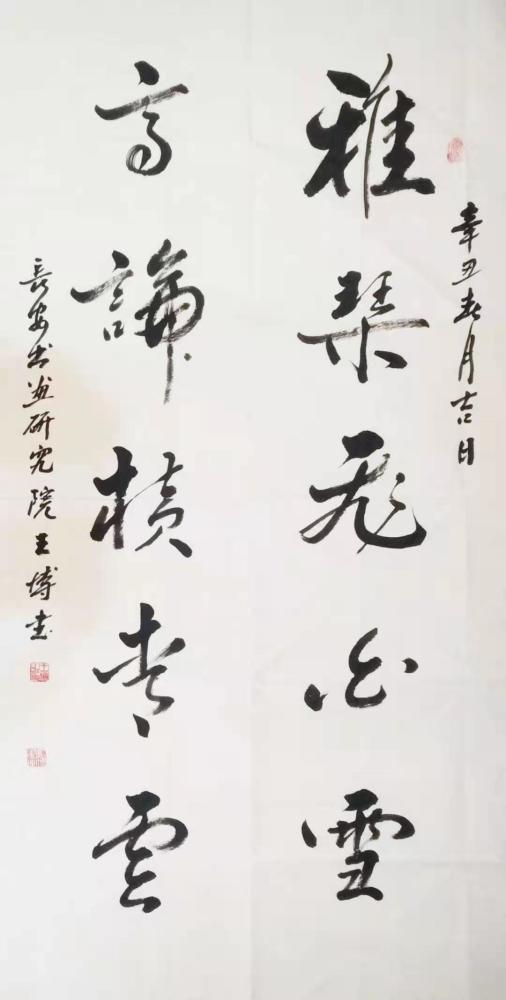 辛丑春月吉日
雅琴飛白雪
高論横青雲
長安書畫研究院王博書